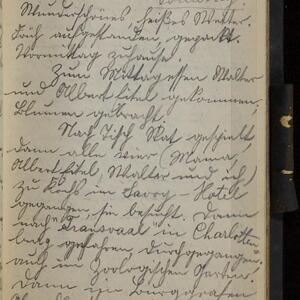 Sonntag
Wunderschönes, heißes Wetter.
Früh aufgestanden, gepackt.
Vormittag zuhause.
Zum Mittagessen Walter
und Albert Eitel gekommen,
Blumen gebracht.
Nach Tisch Skat gespielt
dann alle vier (Mama,
Albert Eitel, Walter und ich)
zu im Savoy-Hotel
gegangen, sie besucht. Dann
nach Transvaal in Charlotten-
burg gefahren, durchgegangen,
auch im Zoologischen Garten.
Dann im Burggrafen